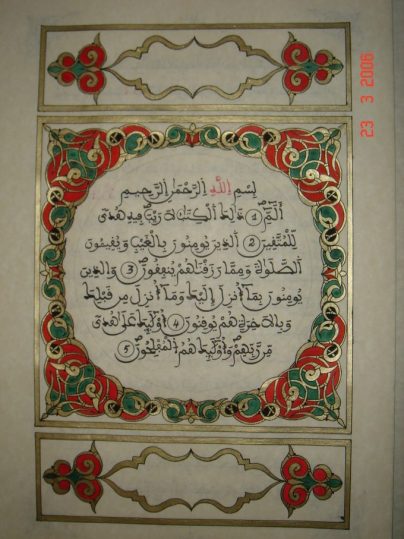 بسم الله الرحمن الرحيم
ألم 1 ذلك الكتاب لا ريب فيه هدى
للمتقين 2 الذين يومنون بالغيب ويقيمون
الصلوة ومما رزقناهم ينفقون 3 والذين
يومنون بما أنزل إليك وما أنزل من قبلك
وبالاخرة هم يوقنون 4 أولئك على هدى
من ربهم وأولئك هم المفلحون 5
23 3 2006